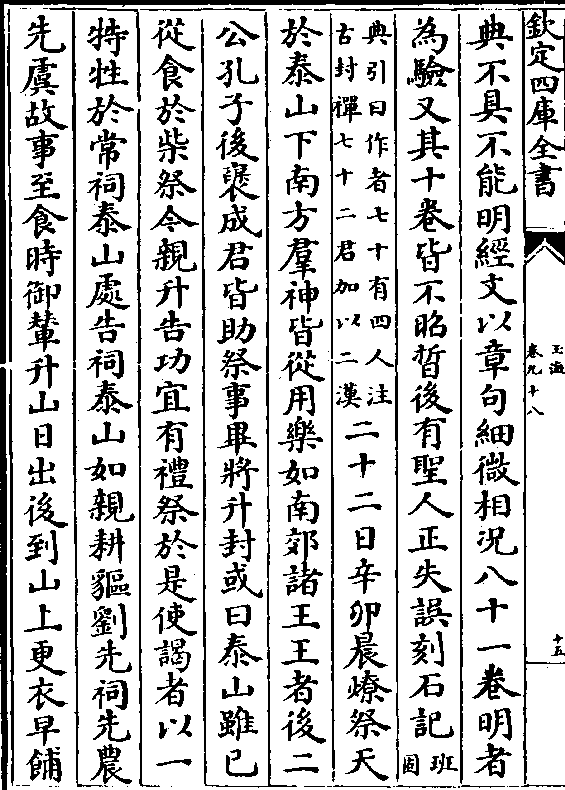 欽定四庫全書
玉海
卷九十八
十五
典不具不能明經文以章句細微相況八十一卷明者
為驗又其十卷皆不昭晢後有聖人正失誤刻石記班
固
典引曰作者七十有四人注
古封禪七十二君加以二漢
二十二日辛卯晨燎祭天
於泰山下南方羣神皆從用樂如南郊諸王王者後二
公孔子後褒成君皆助祭事畢將升封或曰泰山雖已
從食於柴祭今親升告功宜有禮祭於是使謁者以一
特牲於常祠泰山處告祠泰山如親耕貙劉先祠先農
先虞故事至食時御輦升山日出後到山上更衣早餔